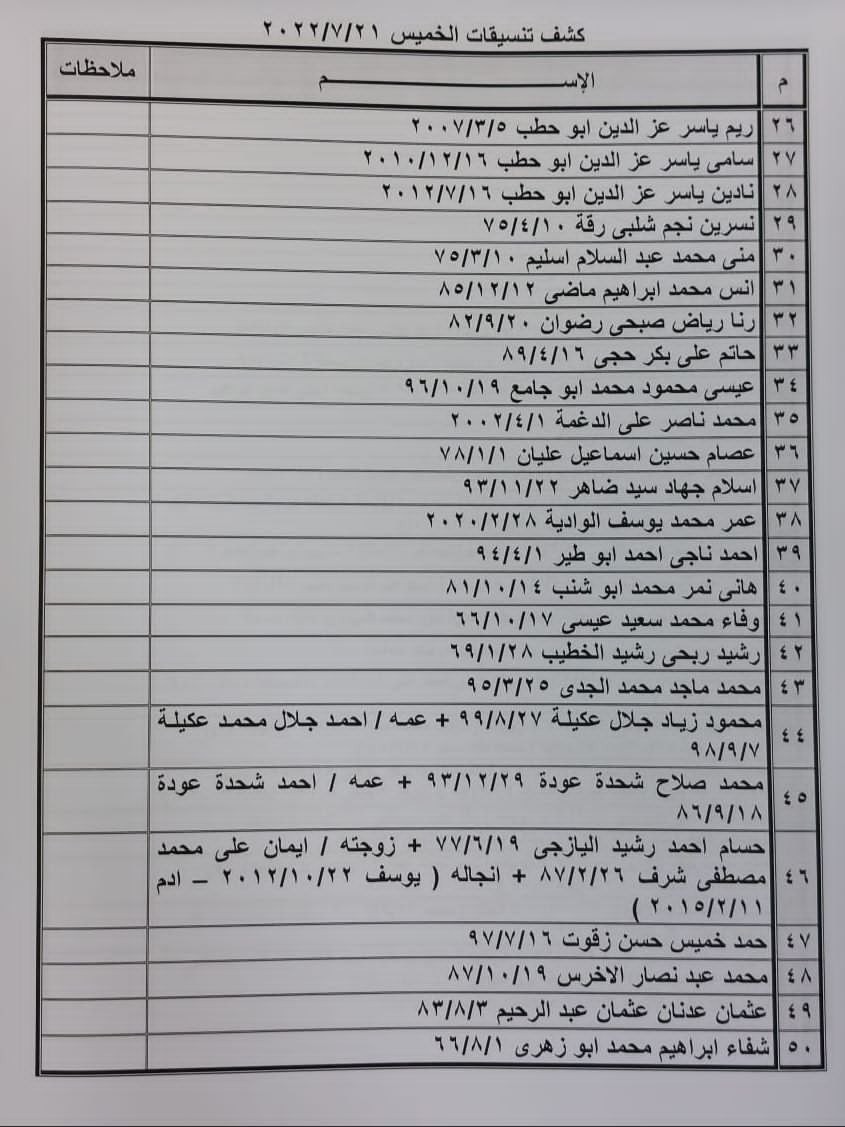 كشف تنسيقات الخميس ٢٠٢٢/٧/٢١
م الإســــــــم ملاحظات
٢٦ ريم ياسر عز الدين ابو حطب ٢٠٠٧/٣/٥
٢٧ سامى ياسر عز الدين ابو حطب ٢٠١٠/١٢/١٦
٢٨ نادين ياسر عز الدين ابو حطب ٢٠١٢/٧/١٦
٢٩ نسرين نجم شلبى رقة ٧٥/٤/١٠
٣٠ منى محمد عبد السلام اسليم ٧٥/٣/١٠
٣١ انس محمد ابراهيم ماضى ٨٥/١٢/١٢
٣٢ رنا رياض صبحى رضوان ٨٢/٩/٢٠
٣٣ حاتم على بكر حجى ٨٩/٤/١٦
٣٤ عيسى محمود محمد ابو جامع ٩٦/١٠/١٩
٣٥ محمد ناصر على الدغمة ٢٠٠٢/٤/١
٣٦ عصام حسين اسماعيل عليان ٧٨/١/١
٣٧ اسلام جهاد سيد ضاهر ٩٣/١١/٢٢
٣٨ عمر محمد يوسف الوادية ٢٠٢٠/٢/٢٨
٣٩ احمد ناجى احمد ابو طير ٩٤/٤/١
٤٠ هانى نمر محمد ابو شنب ٨١/١٠/١٤
٤١ وفاء محمد سعيد عيسى ٦٦/١٠/١٧
٤٢ رشيد ربحى رشيد الخطيب ٦٩/١/٢٨
٤٣ محمد ماجد محمد الجدى ٩٥/٣/٢٥
٤٤ محمود زياد جلال عكيلة ٩٩/٨/٢٧ + عمه / احمد جلال محمد عكيلة
٩٨/٩/٧
٤٥ محمد صلاح شحدة عودة ٩٣/١٢/٢٩ + عمه / احمد شحدة عودة
٨٦/٩/١٨
٤٦ حسام احمد رشيد اليازجى ٧٧/٦/١٩ + زوجته / ايمان على محمد
مصطفى شرف ٨٧/٢/٢٦ + انجاله ( يوسف ٢٠١٢/١٠/٢٢ – ادم
٢٠١٥/٢/١١ )
٤٧ حمد خميس حسن زقوت ٩٧/٧/١٦
٤٨ محمد عبد نصار الاخرس ٨٧/١٠/١٩
٤٩ عثمان عدنان عثمان عبد الرحيم ٨٣/٨/٣
٥٠ شفاء ابراهيم محمد ابو زهرى ٦٦/٨/١